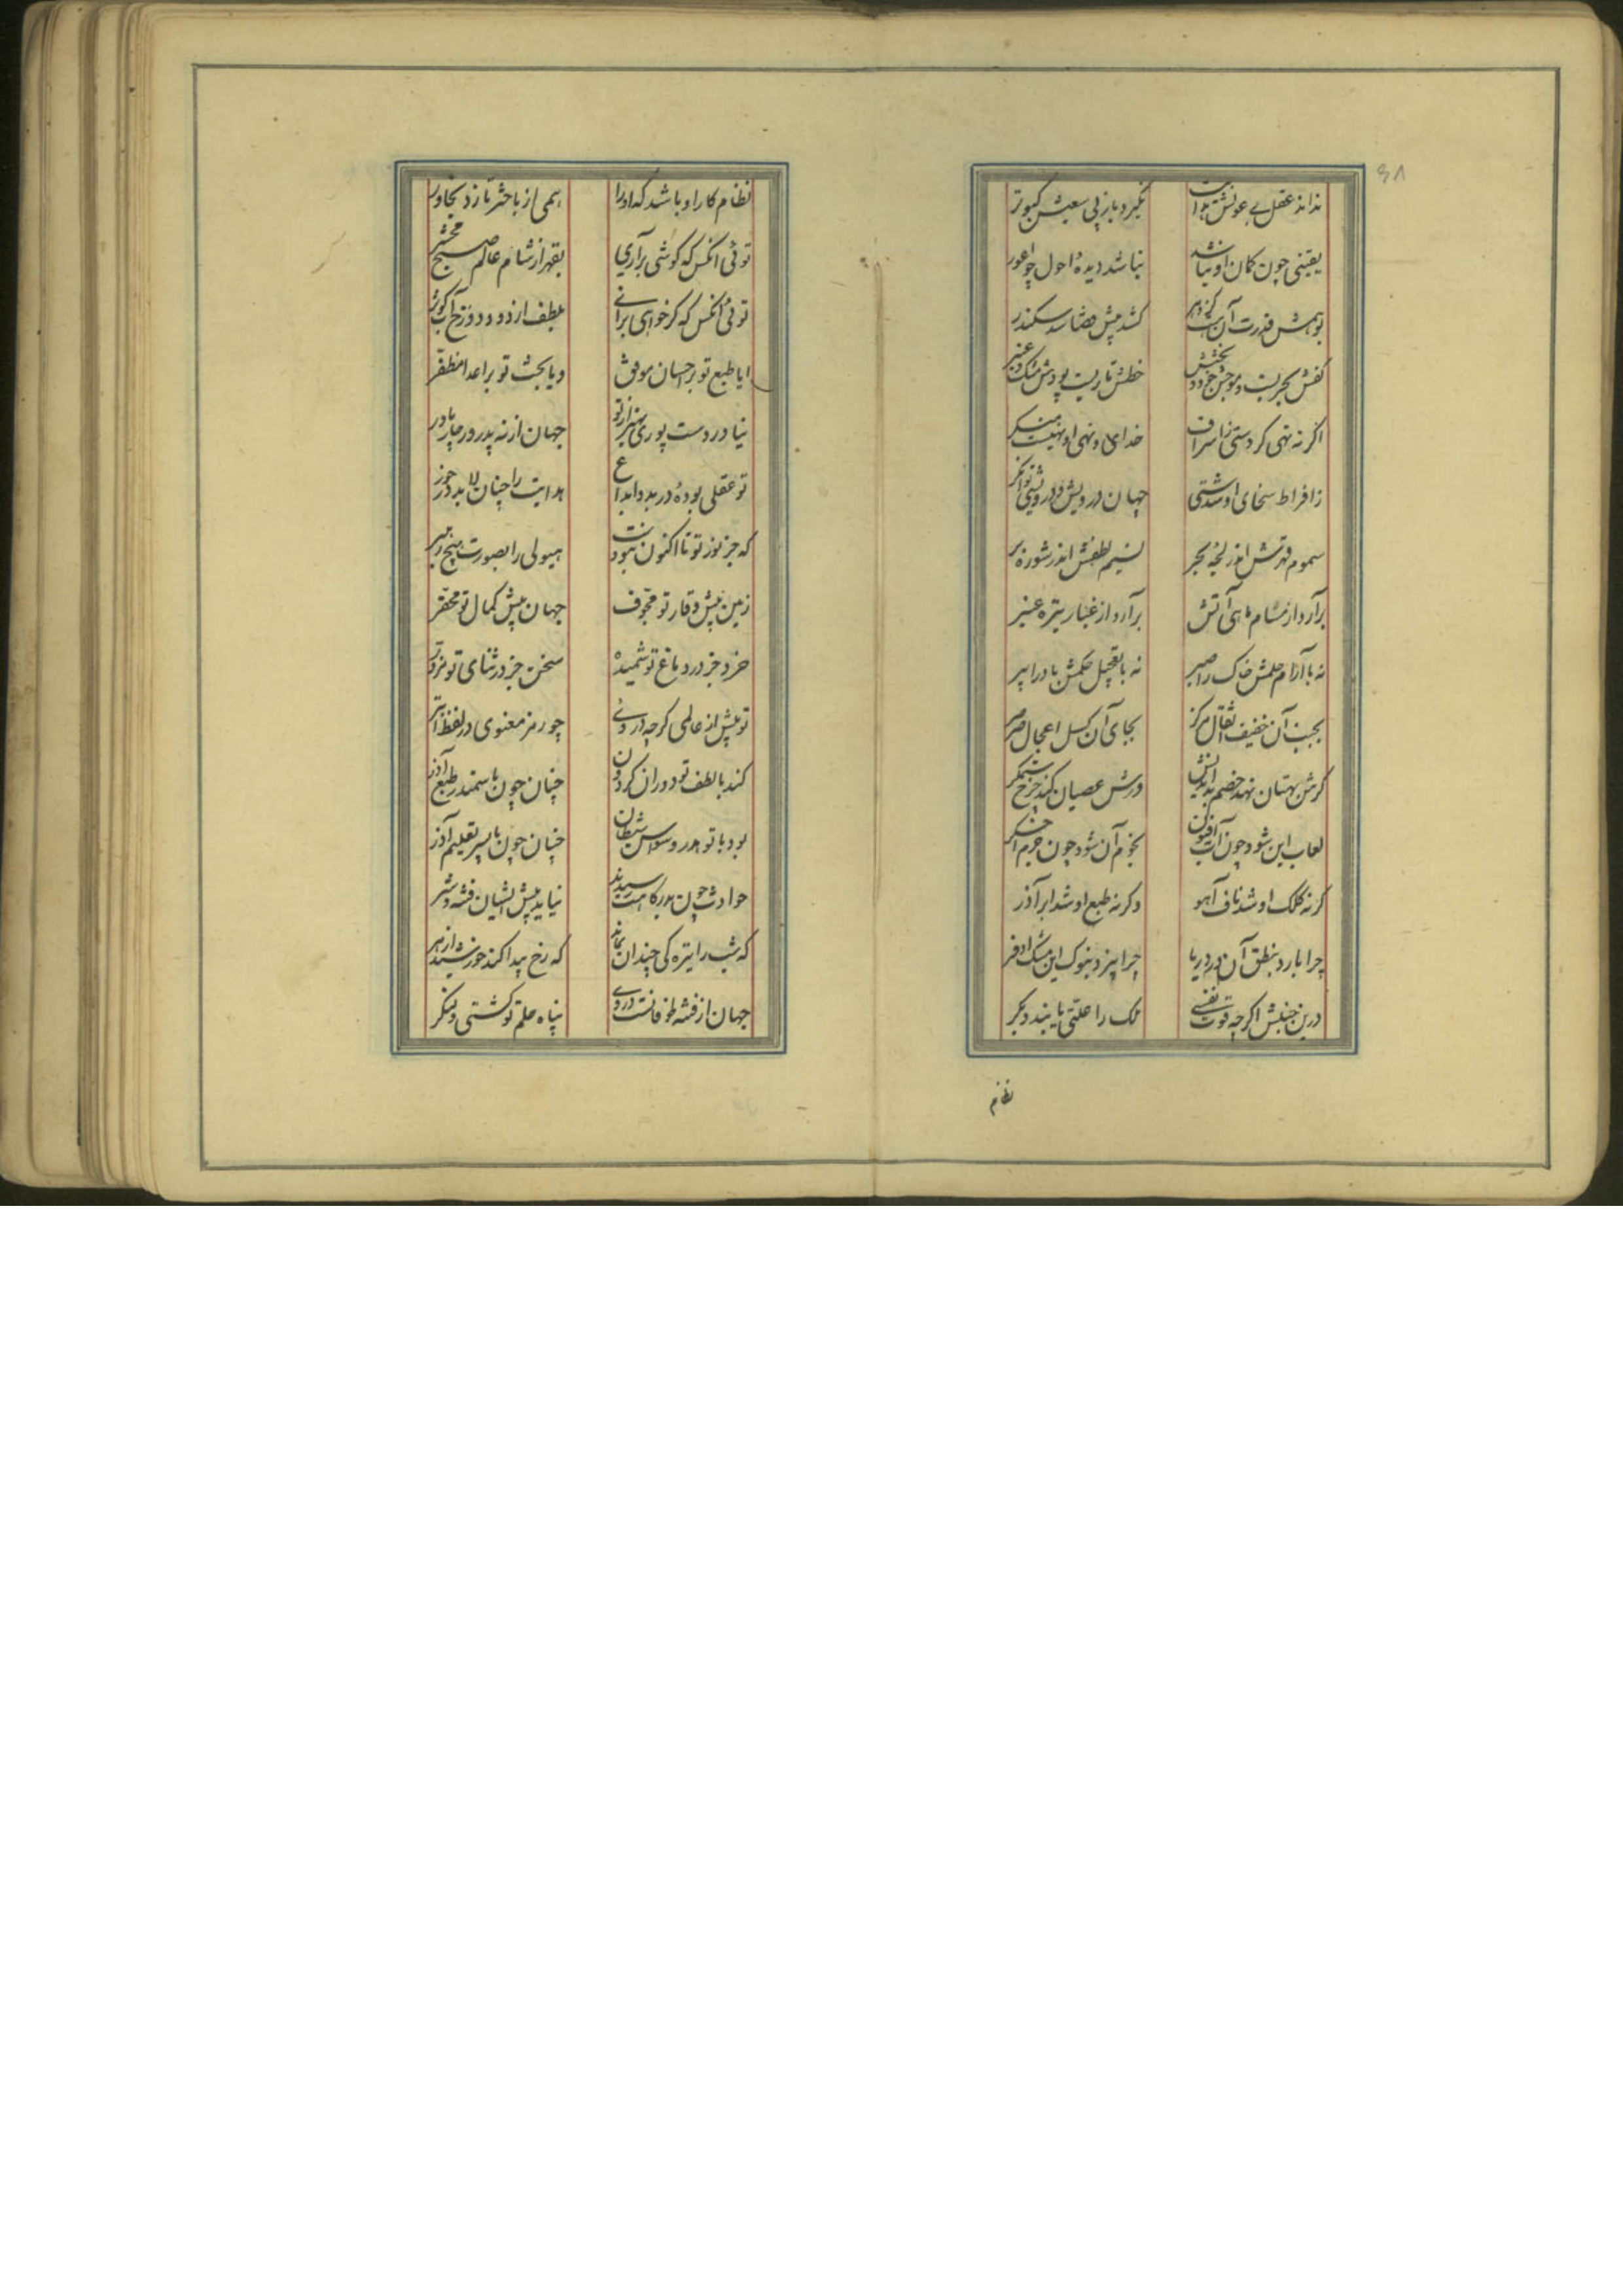 ۶۸
نداند عقل بی عونش هدایت
نگیرد باز بی سعیش کبوتر
یقینی چون کمان او نباشد
نباشد دیدهٔ احول چو اعور
بوهمش قدرت آن هست
کشد پیش قضا سد سکندر
کفش بحریست و موجش جود و بخشش
خطش تاریست پودش مشک و عنبر
اگر نه نهی کردستی ز اسراف
خدای و نهی او نهیست منکر
ز افراط سخای او شدستی
جهان درویش و درویشی توانگر
سموم قهرش اندر لجه بحر
نسیم لطفش اندر شوره بر
برآرد از مشام ماهی آتش
برآرد از غبار تیره عنبر
نه با آرام حلمش خاک را صبر
نه با تعجیل حکمش باد را پر
بجنب آن خفیف اثقال مرکز
بجای آن کسل اعجال صرصر
گرش بهتان نهد خصم بد اندیش
ورش عصیان کند چرخ ستمگر
لعاب این شود چون آب افیون
نجوم آن شود چون جرم اخگر
گرنه کلک او شد ناف آهو
وگرنه طبع او شد ابر آذر
چرا بارد بنطق آن در دریا
چرا ریزد بنوک این مشک اذفر
درین جنبش اگرچه قوت نفسی
لک را علتی یابند دیگر
نظام
نظام کار او باشد که او را
همی از باختر تازد بخاور
توئی آنکس که گر کوشی برآری
بقهر از شام عالم صبح محشر
توئی آنکس که گر خواهی برانی
بلطف از دود دوزخ آب کوثر
ایا طبع تو بر احسان موفق
و یا بخت تو بر اعدا مظفر
نیاوردست پوری بهتر از تو
جهان از نه پدر وز چار مادر
تو عقلی بودهٔ در بدو ابداع
هدایت را چنان لابد و در خور
که جز نور تو تا اکنون نبودست
هیولی را بصورت هیچ رهبر
زمین پیش وقار تو مجوف
جهان پیش کمال تو محقر
خرد جز در دماغ تو شمیده
سخن جز در ثنای تو مزور
تو بیش از عالمی گرچه دروئی
چو رمز معنوی در لفظ ابتر
کند با لطف تو دوران گردون
چنان چون با سمندر طبع آذر
بود با تو هدر وسواس شیطان
چنان چون با پسر تعلیم آذر
حوادث چون بدرگاهت رسیدند
نیاید بیش ایشان فتنه و شر
که شب را تیرگی چندان بماند
که رخ پیدا کند خورشید ازهر
جهان از فتنه طوفانست دروی
پناه حلم تو کشتی و لنگر